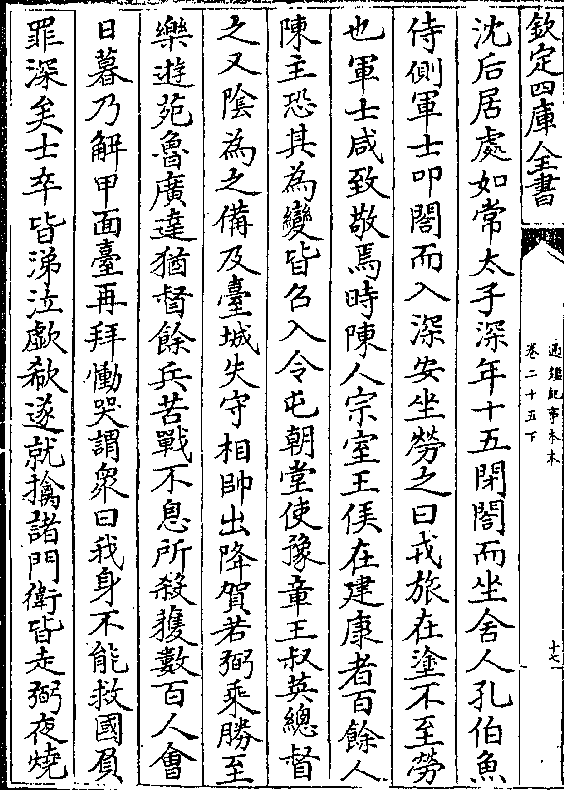 欽定四庫全書
通鑑紀事本末
卷二十五下
十七
沈后居處如常太子深年十五閉閤而坐舍人孔伯魚
侍側軍士叩閤而入深安坐勞之曰戎旅在塗不至勞
也軍士咸致敬焉時陳人宗室王侯在建康者百餘人
陳主恐其為變皆召入令屯朝堂使豫章王叔英總督
之又陰為之備及臺城失守相帥出降賀若弼乘勝至
樂遊苑魯廣達猶督餘兵苦戰不息所殺獲數百人會
日暮乃解甲面臺再拜慟哭謂衆曰我身不能救國負
罪深矣士卒皆涕泣歔欷遂就擒諸門衛皆走弼夜燒